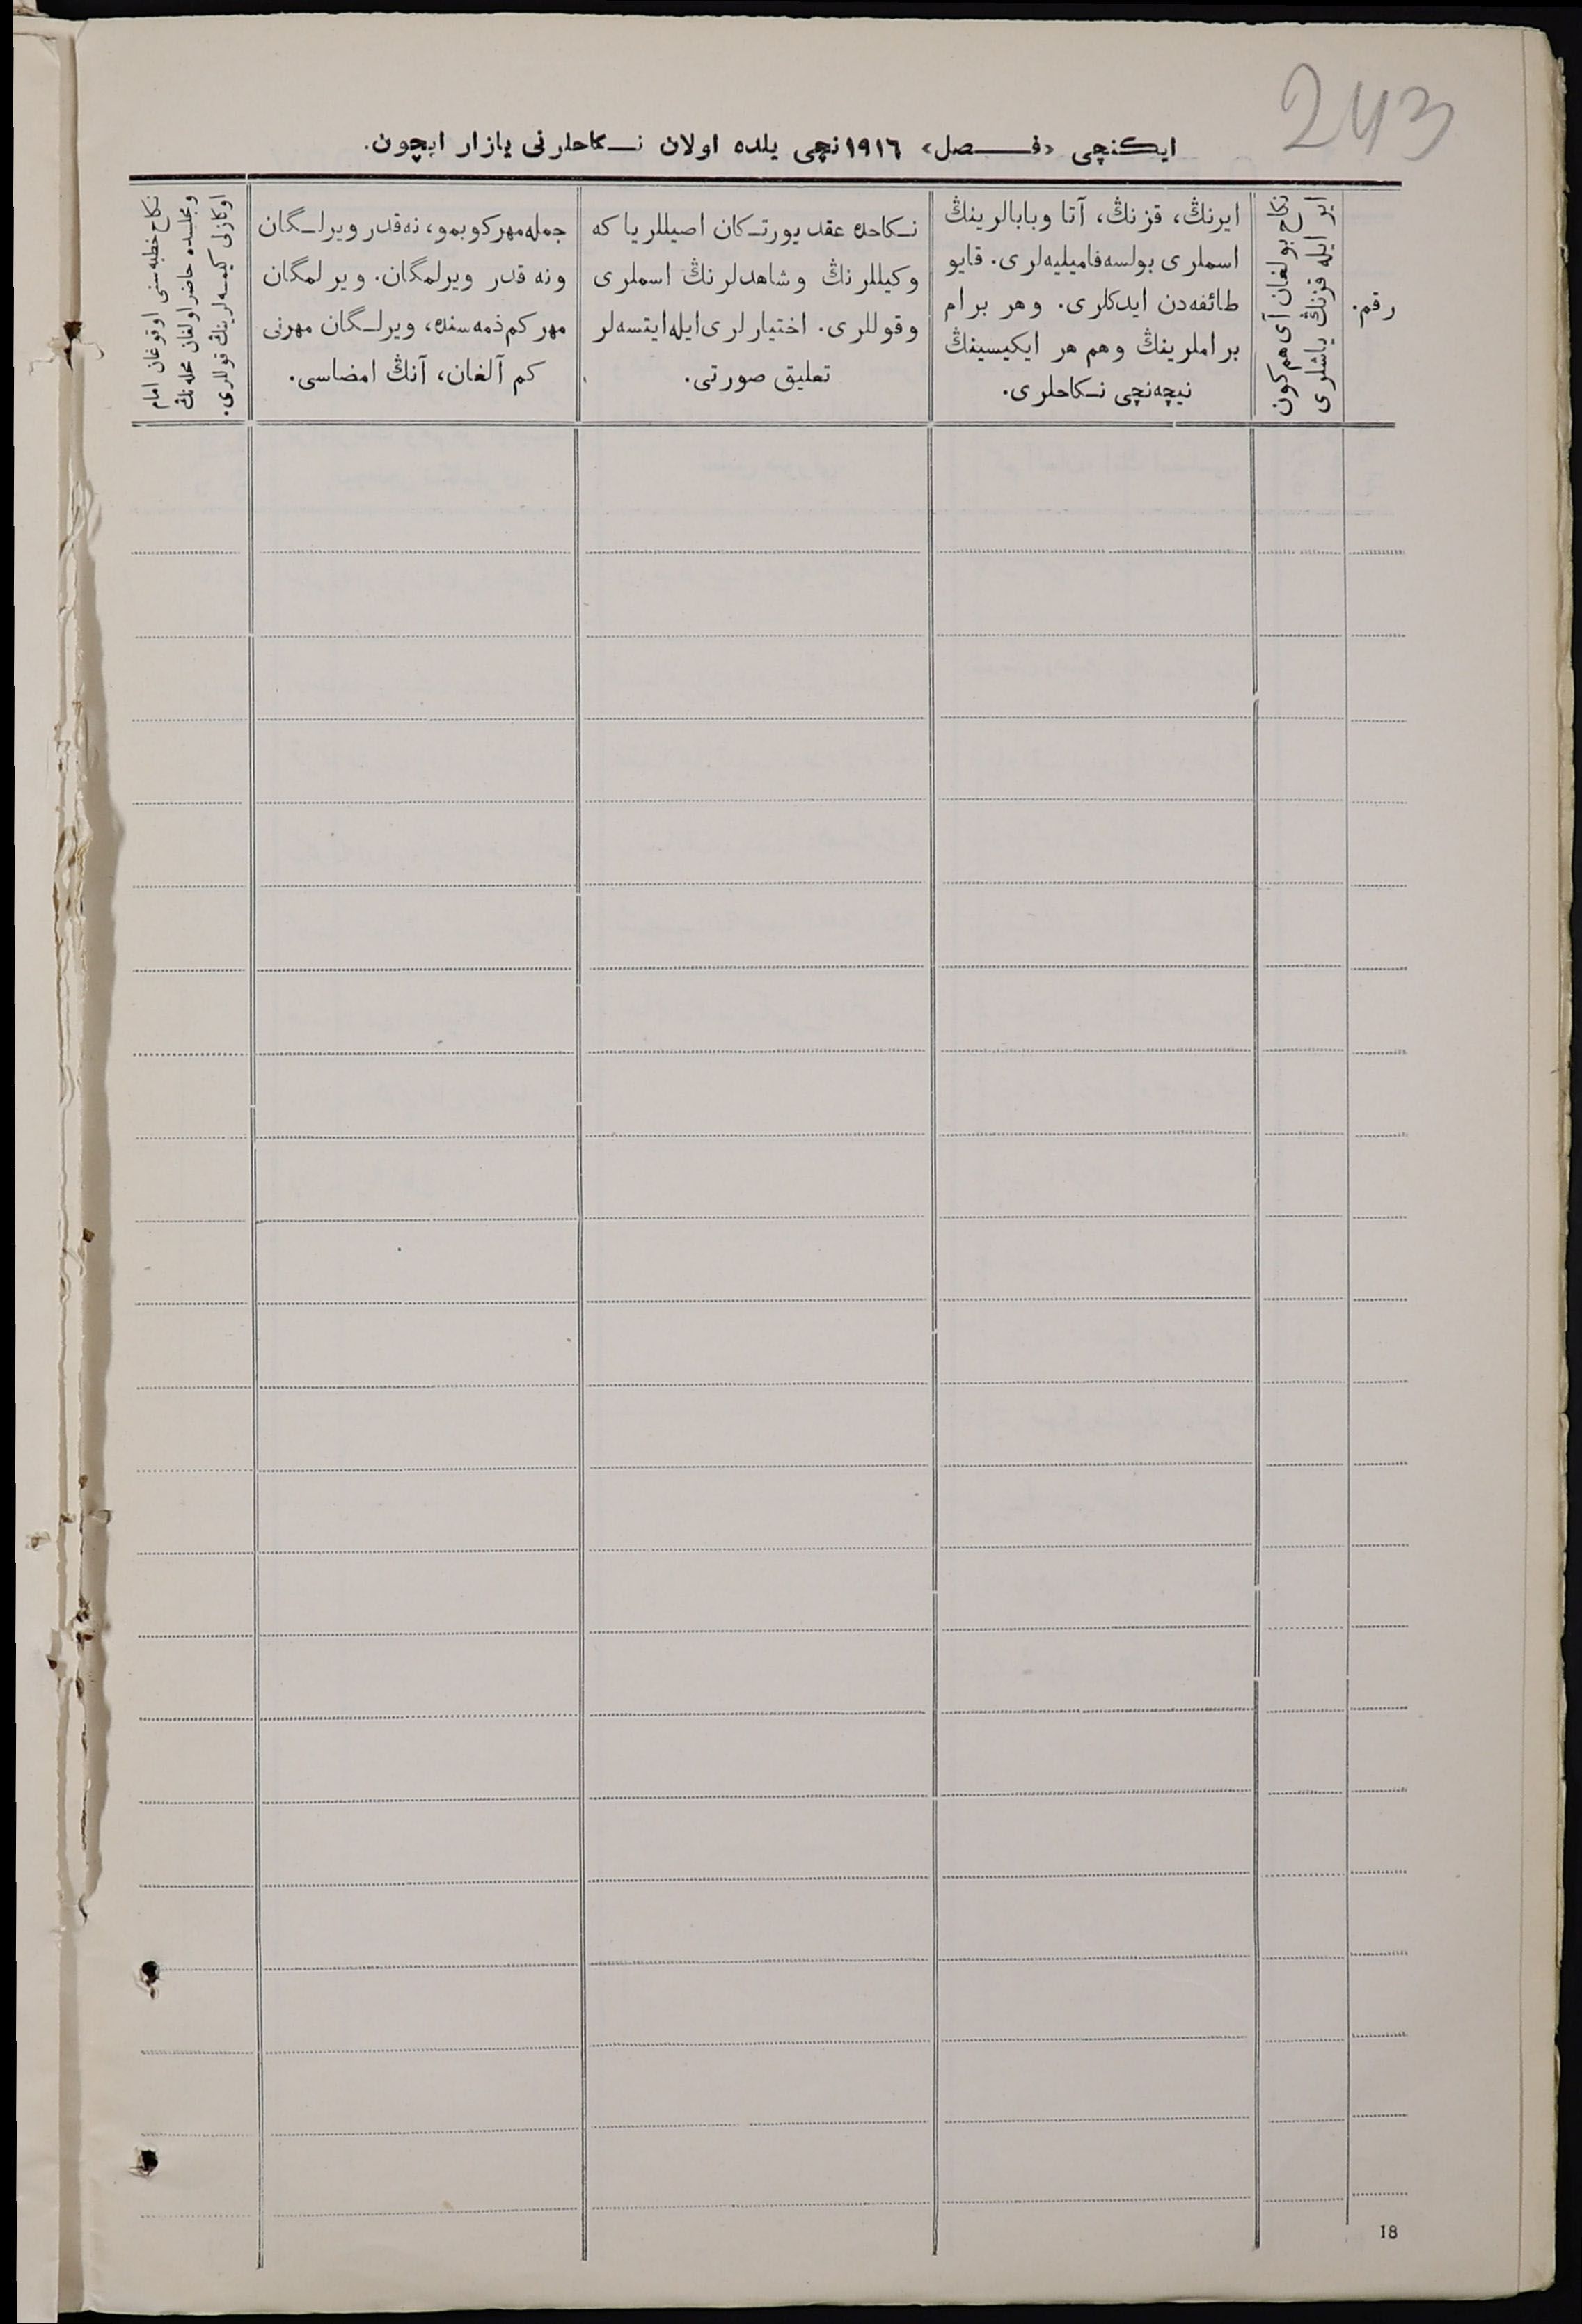 243
ایکنچی «فصل» ١٩١٦نچی یلده اولان نکاحلرنی یازار ایچون.
رقم.
ایر ایله قزنڭ یاشلری
نکاح بولغان آی هم کون
ایرنڭ، قزنڭ، آتا وبابالرینڭ
اسملری بولسه فامیلیه‌لری. قایو
طائفه‌دن ایدکلری. وهر برام
براملرینڭ وهم هر ایکیسینڭ
نیچه‌نچی نکاحلری.
نکاحده عقد یورتکان اصیللر یا که
وکیللرنڭ وشاهدلرنڭ اسملری
وقوللری. اختیارلری ایله ایتسه‌لر
تعلیق صورتی.
جمله مهر کوبمو، نه‌قدر ویرلگان
ونه قدر ویرلمگان. ویرلمگان
مهر کم ذمه‌سنده، ویرلگان مهرنی
کم آلغان، آنڭ امضاسی.
نکاح خطبه‌سنی اوقوغان امام
ومجلسده حاضر اولغان محله‌نڭ
اوکازلی کیمسه‌لرینڭ قوللری.
18